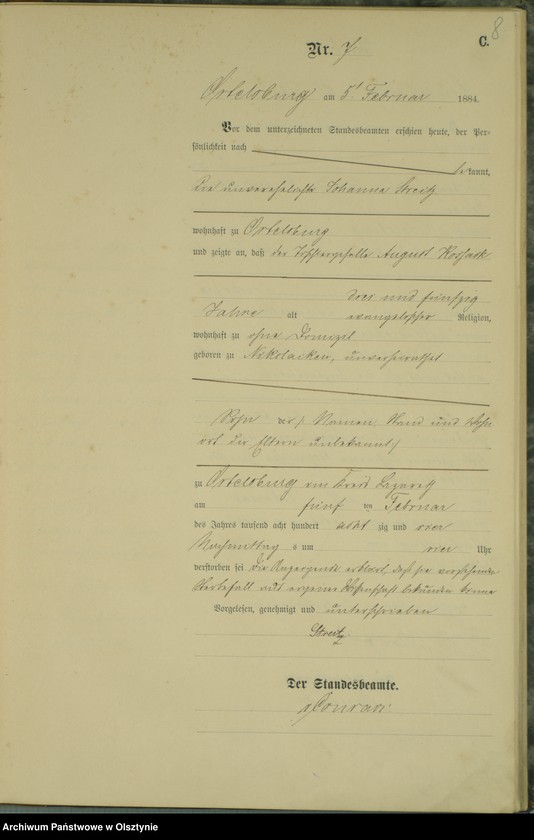 8
C.
Nr. 7
Ortelsburg am 5t Februar 1884.
Vor dem unterzeichneten Standesbeamten erschien heute, der Per-
sönlichkeit nach
bekannt,
die unverehelichte Johanna Streitz
wohnhaft zu Ortelsburg
und zeigte an, daß der Töpfergeselle August Kossack
drei und fünfzig
Jahre alt evangelischer Religion,
wohnhaft zu ohne Domizil
geboren zu Nikolaiken, unverheirathet
Sohn der / Namen, Stand und Wohn
ort der Eltern unbekannt /
zu Ortelsburg im Kreis Lazareth
am fünf ten Februar
des Jahres tausend acht hundert acht zig und vier
Nachmittag s um vier Uhr
verstorben sei Die Anzeigende erklärt, daß sie vorstehenden
Sterbefall aus eigener Wissenschaft bekunden könne
Vorgelesen, genehmigt und unterschrieben
Streitz
Der Standesbeamte.
Archiwum Państwowe w Olsztynie